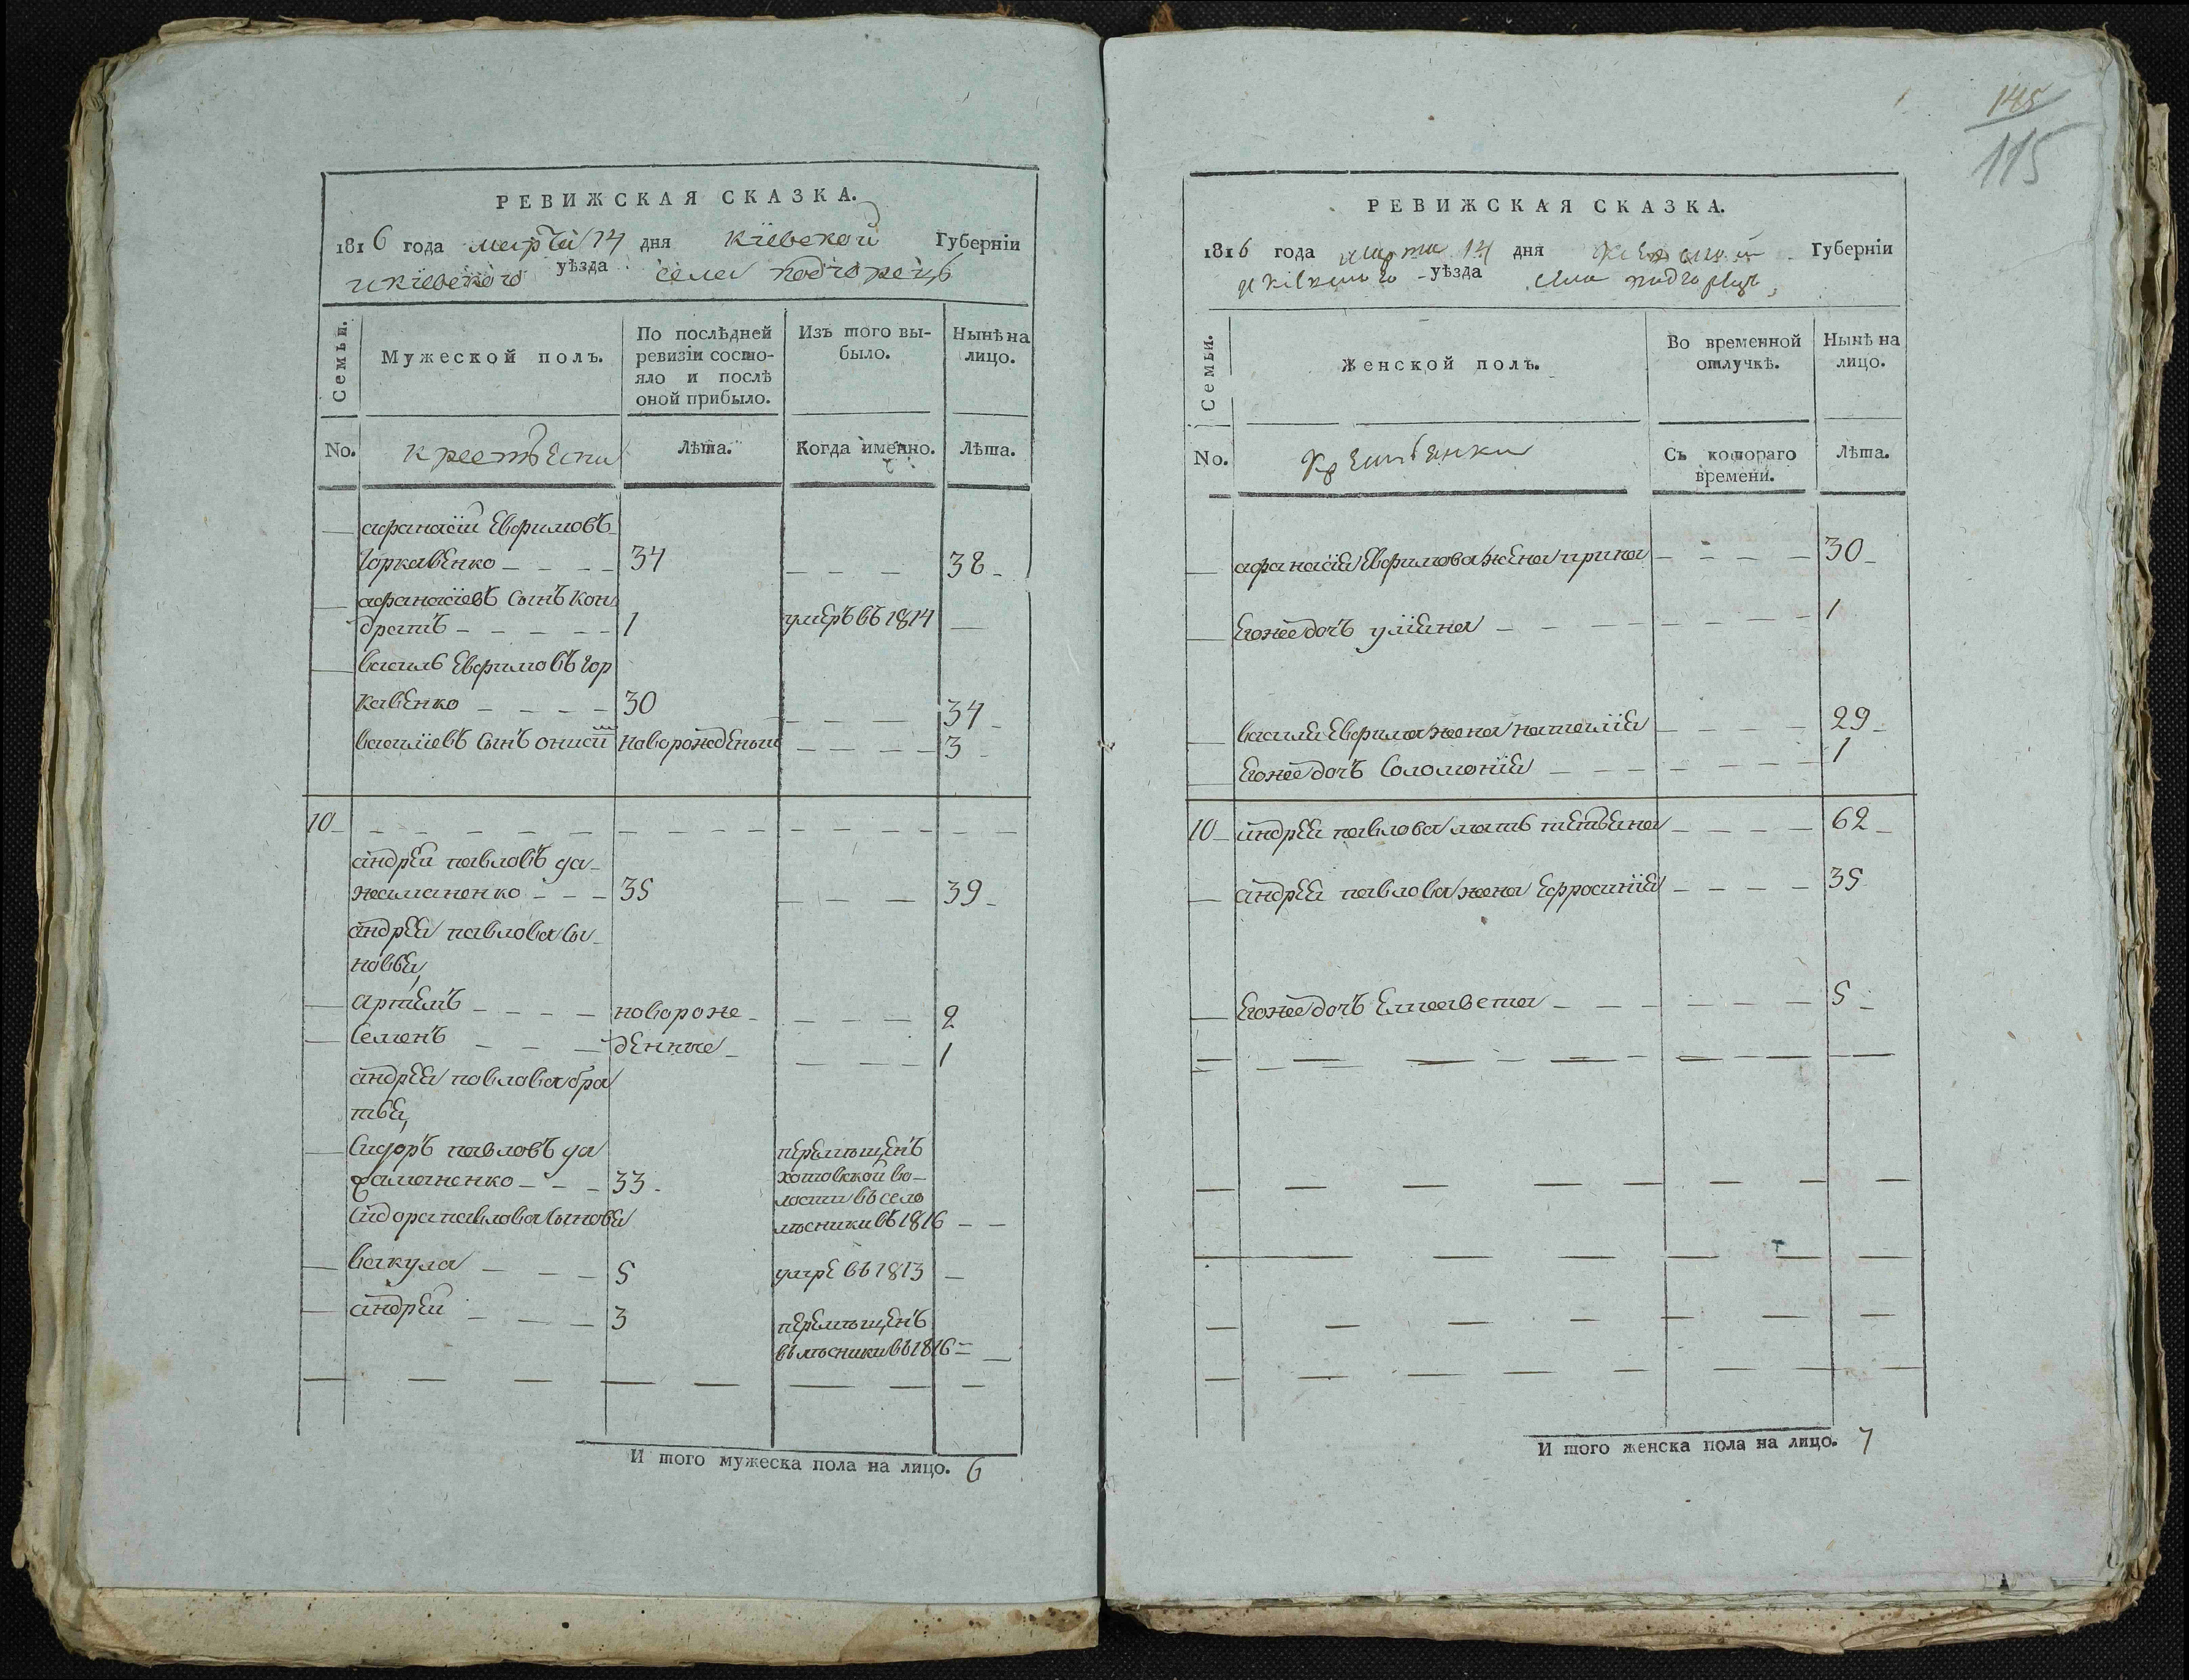 РЕВИЖСКАЯ СКАЗКА.
1816 года марта 14 дня Кіевской Губерніи
и кіевского уѣзда села подгорецъ
Семьи.
Мужеской полъ.
По послѣдней
ревизіи состо-
яло и послѣ
оной прибыло.
Изъ того вы-
было.
Нынѣ на
лицо.
No.
крестьяни
Лѣта.
Когда именно.
Лѣта.
афанасій Евфимовъ
Горкавенко 34 38
афанасіевъ сынъ кон
дратъ 1 умеръ въ 1814
василь Евфимовъ Гор
кавенко 30 34
василіевъ сынъ онисій новорожденый 3
10
андрей павловъ
35 39
андрея павлова сы-
новья
артемъ новорож- 2
Семенъ денные 1
андрея павлова бра
тья
Сидоръ павловъ перемѣщенъ
33 хотовской во-
лости въ село
Сидора павлова сыновя лѣсники въ 1816
вакула 5 умре въ 1813
андрей 3 перемѣщенъ
въ лѣсники въ 1816
И того мужеска пола на лицо. 6
145
115
РЕВИЖСКАЯ СКАЗКА.
1816 года марта 14 дня Кіевской Губерніи
и кіевского уѣзда села подгорецъ
Семьи.
Женской полъ.
Во временной
отлучкѣ.
Нынѣ на
лицо.
No.
Крестьянки
Съ котораго
времени.
Лѣта.
афанасія Евфимова жена ирина 30
Егоже дочъ уліяна 1
василя Евфима жена наталія 29
Егоже дочъ Соломонія 1
10 андрея павлова мать татьяна 62
андрея павлова жена Ефросинія 35
Егоже дочъ Елисавета 5
И того женска пола на лицо. 7